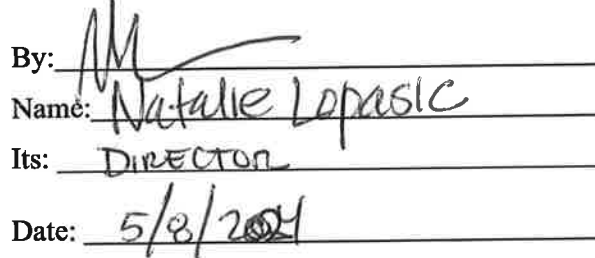 By:
Name: Natalie Lopasic
Its: DIRECTOR
Date: 5/8/2024